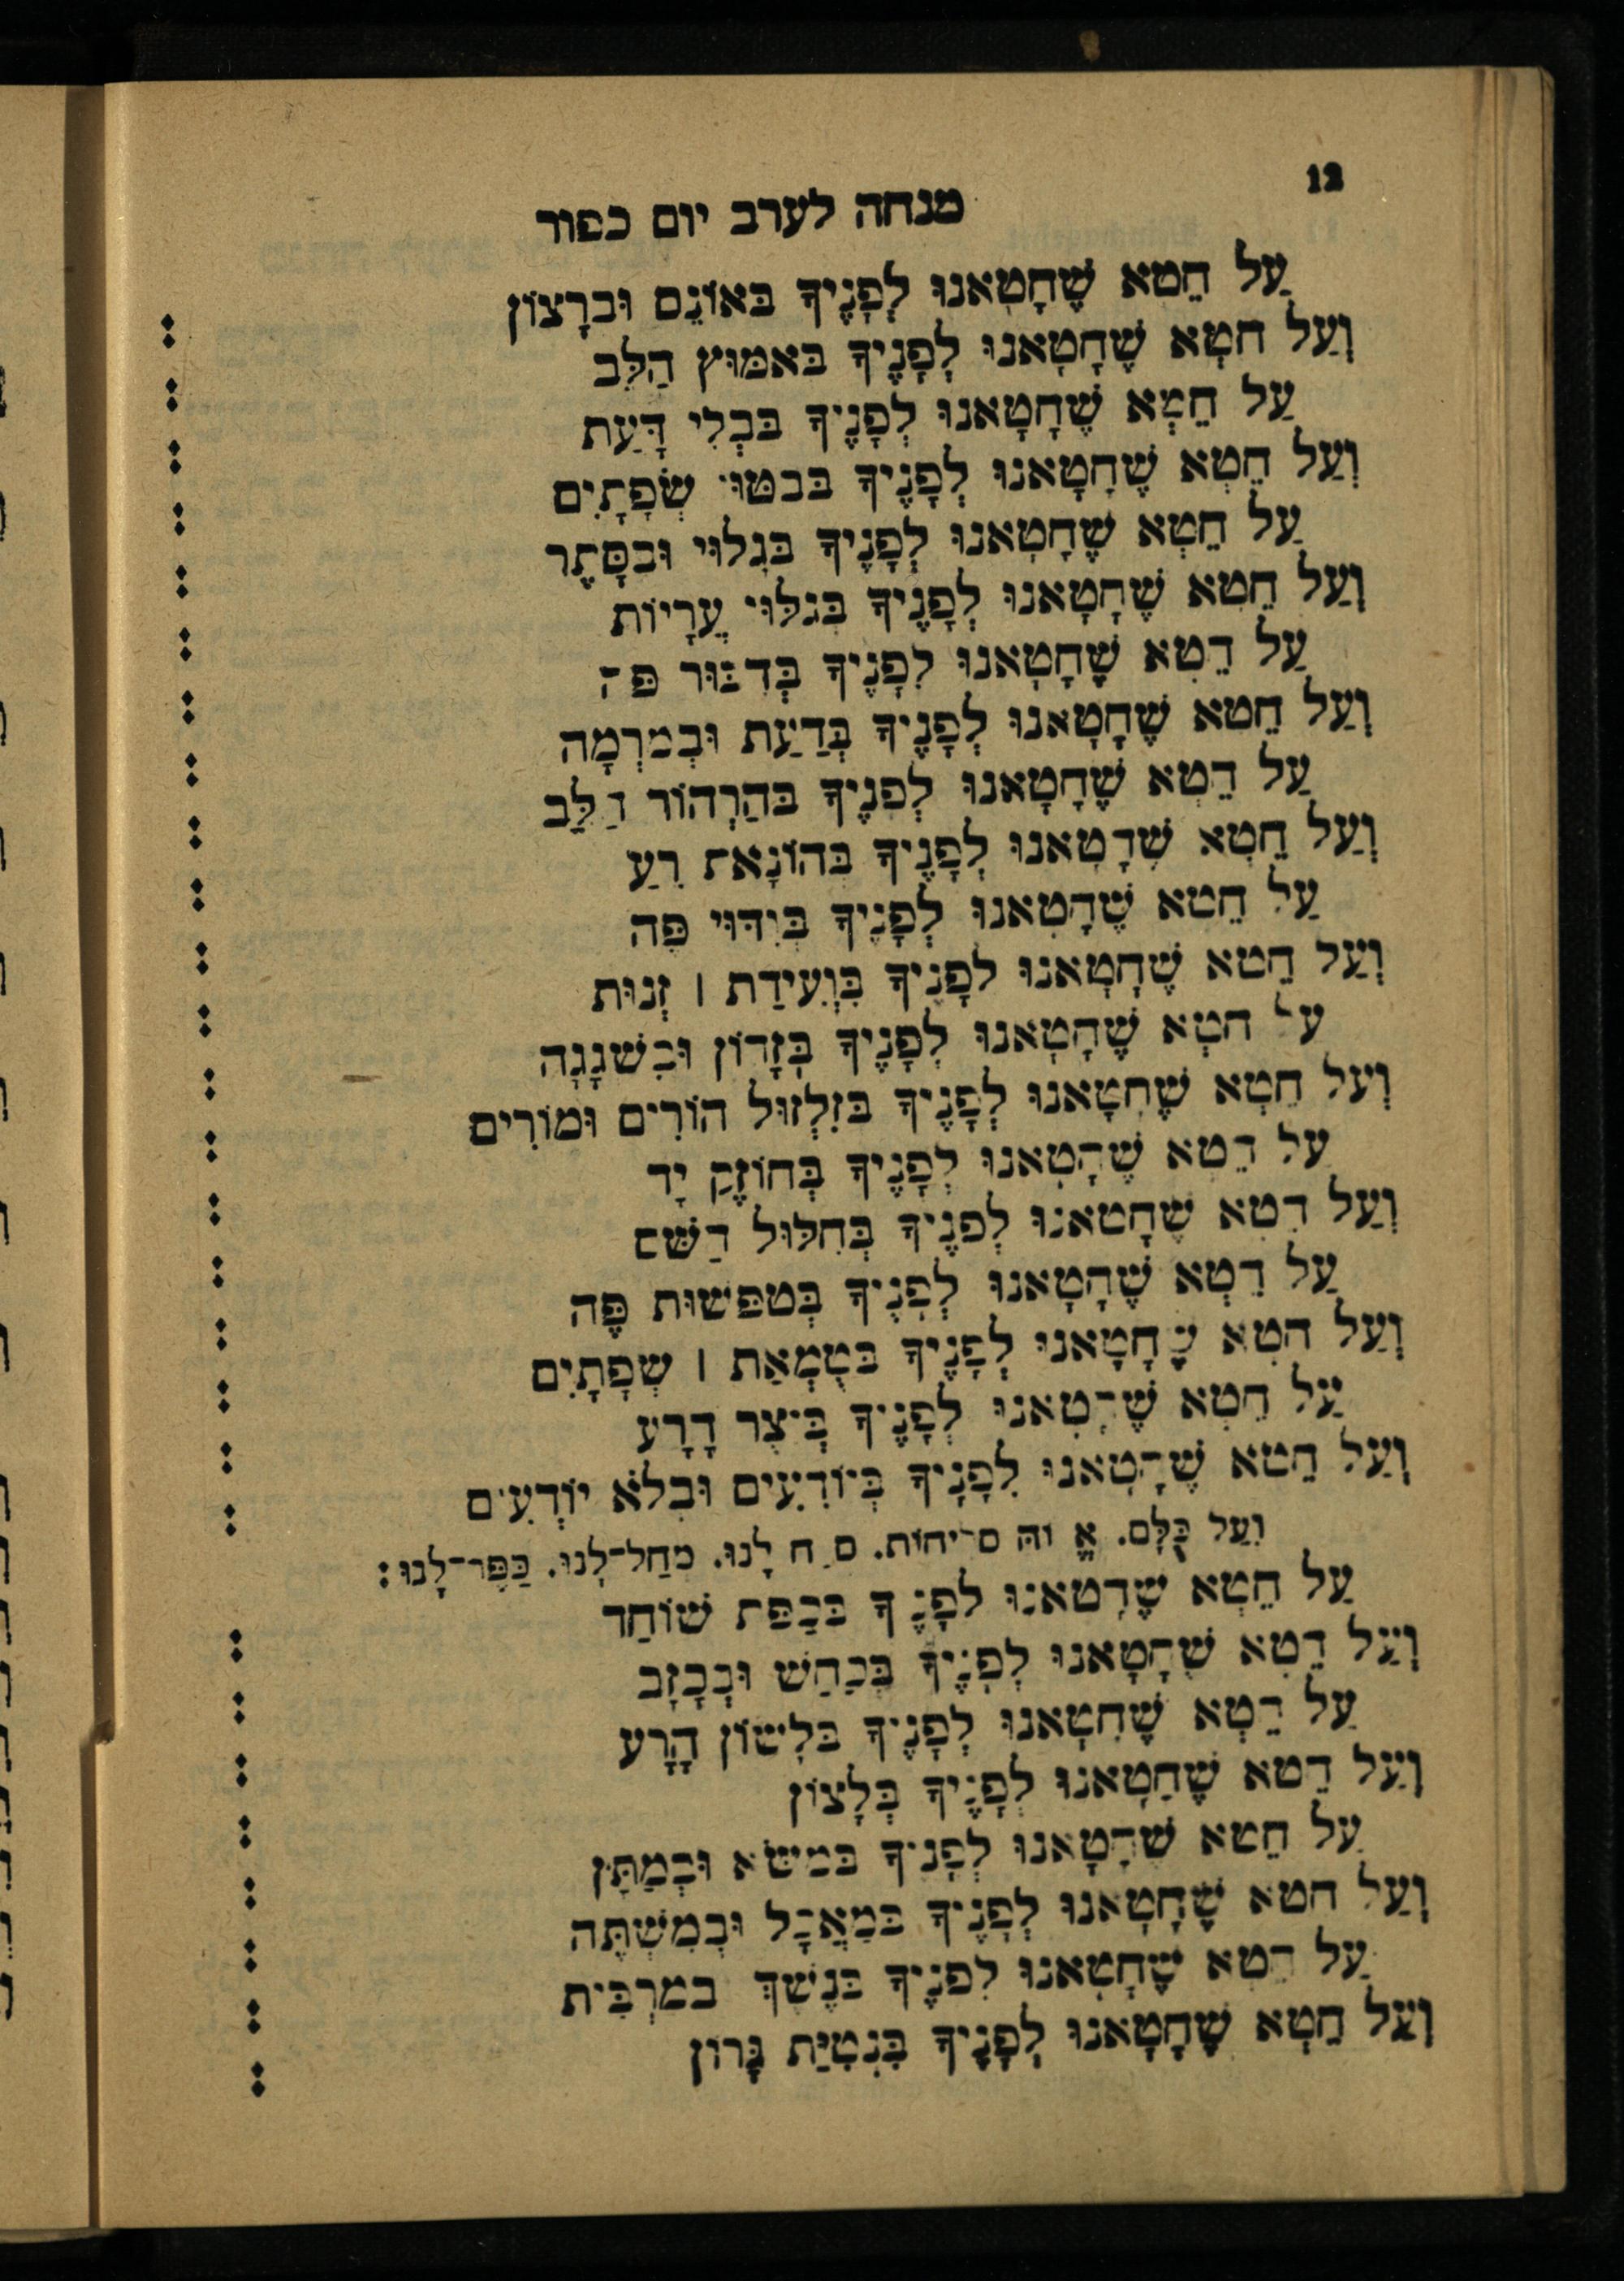 12
מנחה לערב יום כפור
עַל חֵטְא שֶׁחָטָאנוּ לְפָנֶיךָ בּאוֹנֶס וּברָצוֹן :
וְעַל חטְא שֶׁחָטָאנוּ לְפָנֶיךָ בּאמּוּץ הַלֵּב :
עַל חֵטְא שֶׁחָטָאנוּ לְפָנֶיךָ בּבְלִי דָּעַת :
וְעַל חֵטְא שֶׁחָטָאנוּ לְפָנֶיךָ בּבטּוּי שְׂפָתָיִם :
עַל חֵטְא שֶׁחָטָאנוּ לְפָנֶיךָ בּגלוּי וּבסָּתֶר :
וְעַל חֵטְא שֶׁחָטָאנוּ לְפָנֶיךָ בּגלּוּי עֲרָיוֹת :
עַל חֵטְא שֶׁחָטָאנוּ לְפָנֶיךָ בְּדִבּוּר פּה :
וְעַל חֵטְא שֶׁחָטָאנוּ לְפָנֶיךָ בְּדַעַת וּבְמרְמָה :
עַל חֵטְא שֶׁחָטָאנוּ לְפָנֶיךָ בּהַרְהוֹר הַלֵּב :
וְעַל חֵטְא שֶׁחָטָאנוּ לְפָנֶיךָ בּהוֹנָאת רֵעַ :
עַל חֵטְא שֶׁחָטָאנוּ לְפָנֶיךָ בְּוִדּוּי פֶּה :
וְעַל חֵטְא שֶׁחָטָאנוּ לפָנֶיךָ בִּוְעִידַת ׀ זְנוּת :
על חטְא שֶׁחָטָאנוּ לְפָנֶיךָ בְּזָדוֹן וּבִשׁגָגָה :
וְעל חֵטְא שֶׁחָטָאנוּ לְפָנֶיךָ בּזִלְזוּל הוֹרִים וּמוֹרִים :
עַל חֵטְא שֶׁחָטָאנוּ לְפָנֶיךָ בְּחוֹזֶק יָד :
וְעַל חֵטְא שֶׁחָטָאנוּ לְפָנֶיךָ בְּחִלּוּל הַשּׁם :
עַל חֵטְא שֶׁחָטָאנוּ לְפָנֶיךָ בְּטפּשׁוּת פֶּה :
וְעַל חטְא שֶׁחָטָאנוּ לְפָנֶיךָ בּטֻמְאַת ׀ שְׂפָתָיִם :
עַל חֵטְא שֶׁחָטָאנוּ לְפָנֶיךָ בְּיֵצֶר הָרָע :
וְעַל חֵטְא שֶׁחָטָאנוּ לְפָנֶיךָ בְּיוֹדְעִים וּבְלֹא יוֹדְעִים :
וְעַל כֻּלָּם. אֱלוֹהּ סליחוֹת. סלַח לָנוּ. מְחַל־לָנוּ. כַּפֶּר־לָנוּ :
עַל חֵטְא שֶׁחָטָאנוּ לפָנֶיךָ בּכַפּת שׁוֹחַד :
וְעַל חֵטְא שֶׁחָטָאנוּ לְפָנֶיךָ בְּכַחַשׁ וּבְכָזָב :
עַל חֵטְא שֶׁחָטָאנוּ לְפָנֶיךָ בּלְשׁוֹן הָרָע :
וְעַל חֵטְא שֶׁחָטָאנוּ לְפָנֶיךָ בְּלָצוֹן :
עַל חֵטְא שֶׁחָטָאנוּ לְפָנֶיךָ בּמשּׂא וּבְמַתָּן :
וְעַל חטְא שֶׁחָטָאנוּ לְפָנֶיךָ בּמַאֲכָל וּבְמִשְׁתֶּה :
עַל חֵטְא שֶׁחָטָאנוּ לְפָנֶיךָ בּנֶשֶׁךְ וּבמרְבִּית :
וְעַל חֵטְא שֶׁחָטָאנוּ לְפָנֶיךָ בִּנְטִיַּת גָּרוֹן :